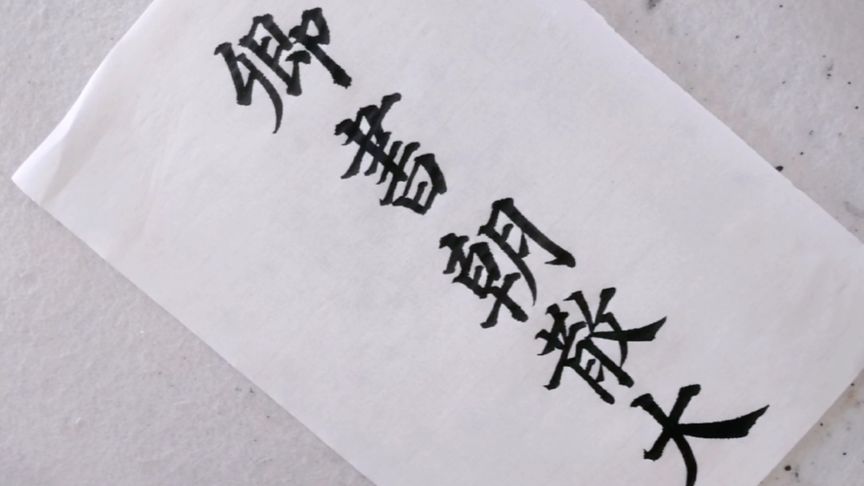 卿書朝散大